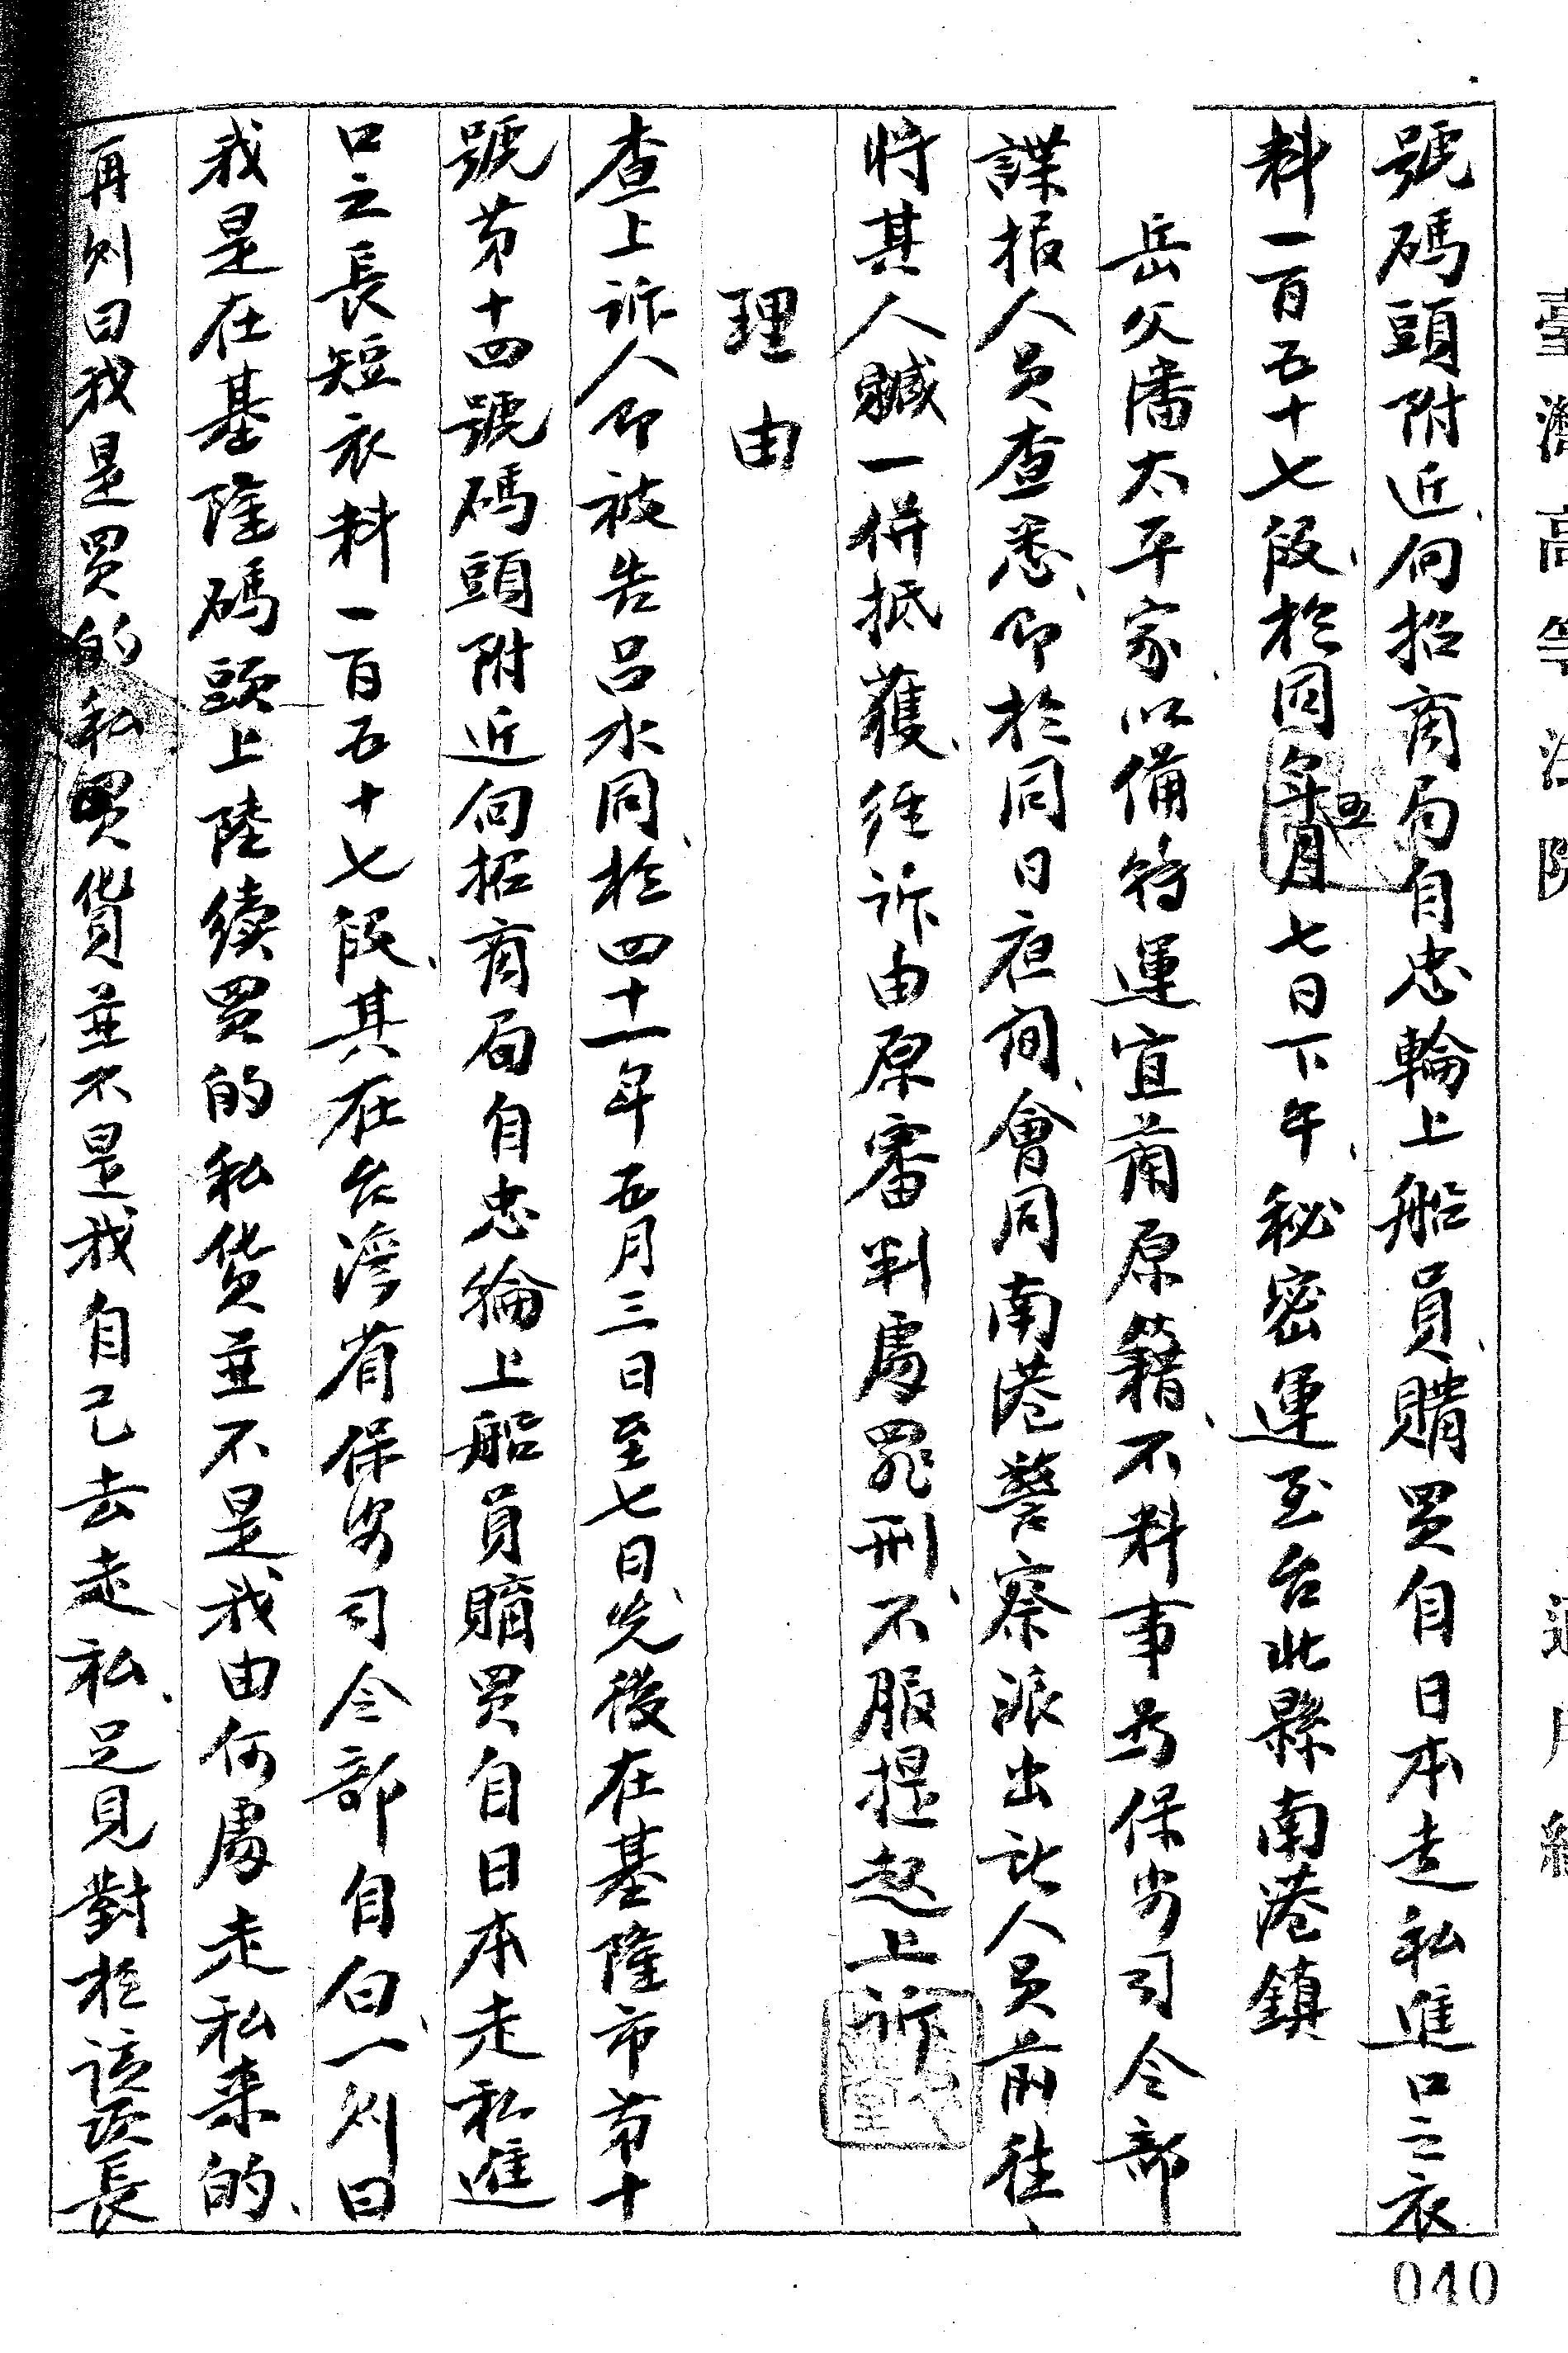 臺灣高等法院
號碼頭附近、向招商局自忠輪上船員、購買自日本走私進口之衣
料一百五十七段、於同年五月七日下午、秘密運至台北縣南港鎮
岳父潘太平家、以備待運宜蘭原籍、不料事為保安司令部
諜报人員查悉、即於同日夜間、會同南港警察派出所人員前往、
將其人贓一併抵獲、經訴由原審判處罪刑、不服提起上訴
理由
查上訴人即被告呂水同、於四十一年五月三日至七日、先後在基隆市第十
號第十四號碼頭附近向招商局自忠輪上船員購買自日本走私進
口之長短衣料一百五十七段、其在台灣省保安司令部自白、一則曰
我是在基隆碼頭上陸續買的私貨並不是我由何處走私來的、
再則曰我是買的私貨並不是我自己去走私、足見對於該項長
040